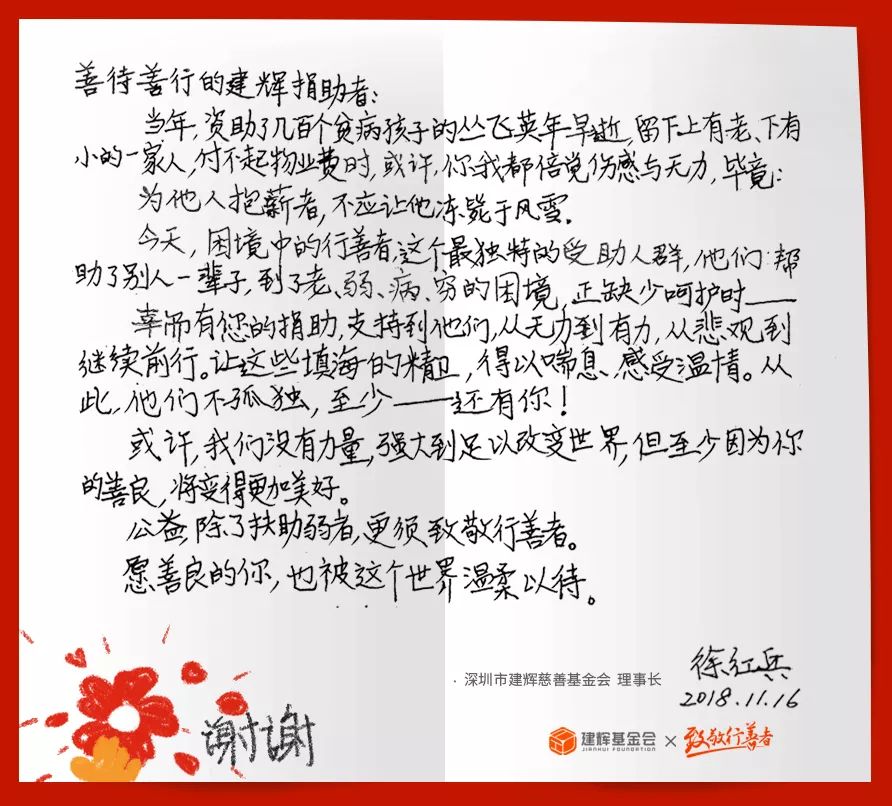 善待善行的建辉捐助者:
当年,资助了几百个贫病孩子的丛飞英年早逝,留下上有老、下有
小的一家人,付不起物业费时,或许,你我都倍觉伤感与无力,毕竟:
为他人抱薪者,不应让他冻毙于风雪.
今天,困境中的行善者,这个最独特的受助人群,他们:帮
助了别人一辈子,到了老、弱、病、穷的困境,正缺少呵护时——
幸而有您的捐助,支持到他们,从无力到有力,从悲观到
继续前行。让这些填海的精卫,得以喘息、感受温情。从
此,他们不孤独,至少——还有你!
或许,我们没有力量,强大到足以改变世界,但至少因为你
的善良,将变得更加美好。
公益,除了扶助弱者,更须致敬行善者。
愿善良的你,也被这个世界温柔以待。
· 深圳市建辉慈善基金会 理事长 徐红兵
2018.11.16
谢谢
建辉基金会 × 致敬行善者
JIANHUI FOUNDATION